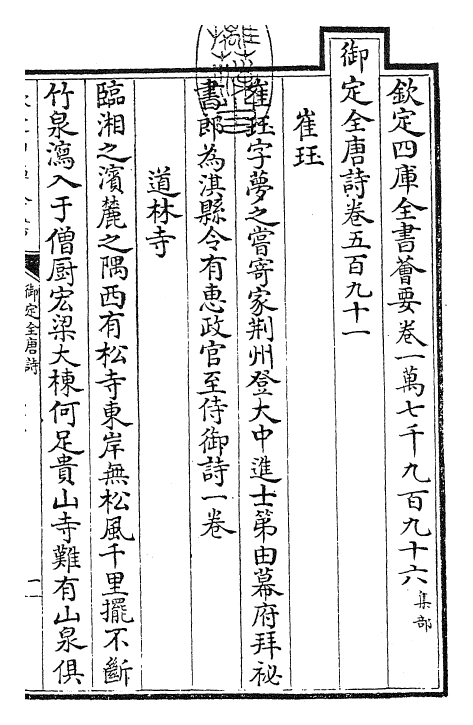 欽定四庫全書薈要卷一萬七千九百九十六集部
御定全唐詩卷五百九十一
崔珏
崔珏字夢之嘗寄家荆州登大中進士第由幕府拜祕
書郎為淇縣令有惠政官至侍御詩一卷
道林寺
臨湘之濱麓之隅西有松寺東岸無松風千里擺不斷
竹泉瀉入于僧厨宏梁大棟何足貴山寺難有山泉俱
御定全唐詩